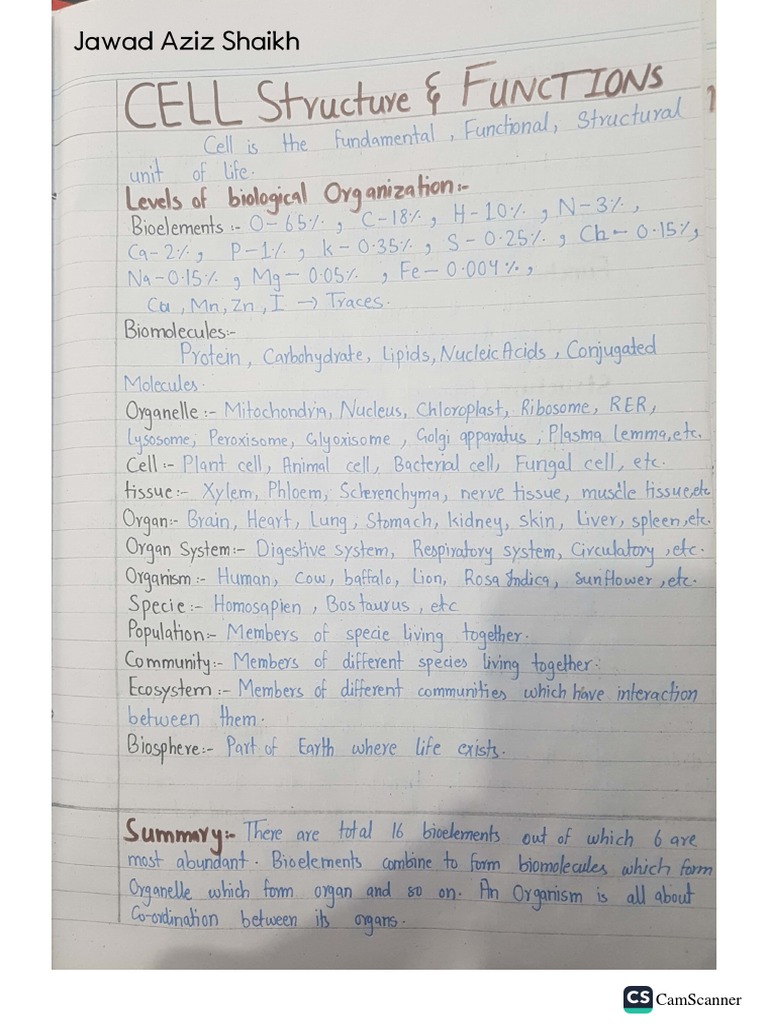 Jawad Aziz Shaikh
CELL Structure & FUNCTIONS
Cell is the fundamental, Functional, Structural
unit of life.
Levels of biological Organization:-
Bioelements:- O-65%, C-18%, H-10%, N-3%,
Ca-2%, P-1%, K-0.35%, S-0.25%, Ch-0.15%,
Na-0.15%, Mg-0.05%, Fe-0.004%,
Cu, Mn, Zn, I → Traces.
Biomolecules:-
Protein, Carbohydrate, Lipids, Nucleic Acids, Conjugated
Molecules.
Organelle:- Mitochondria, Nucleus, Chloroplast, Ribosome, RER,
Lysosome, Peroxisome, Glyoxisome, Golgi apparatus, Plasma lemma, etc.
Cell:- Plant cell, Animal cell, Bacterial cell, Fungal cell, etc.
tissue:- Xylem, Phloem, Sclerenchyma, nerve tissue, muscle tissue, etc
Organ:- Brain, Heart, Lung, Stomach, kidney, skin, Liver, spleen, etc.
Organ System:- Digestive system, Respiratory system, Circulatory, etc.
Organism:- Human, Cow, baffalo, Lion, Rosa Indica, sunflower, etc.
Specie:- Homosapien, Bos taurus, etc
Population:- Members of specie living together.
Community:- Members of different species living together.
Ecosystem:- Members of different communities which have interaction
between them.
Biosphere:- Part of Earth where life exists.
Summary:- There are total 16 bioelements out of which 6 are
most abundant. Bioelements combine to form biomolecules which form
Organelle which form organ and so on. An Organism is all about
Co-ordination between its organs.
CS CamScanner